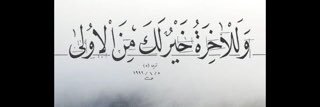 وَلَلْآخِرَةُ خَيْرٌ لَكَ مِنَ الْأُولَى